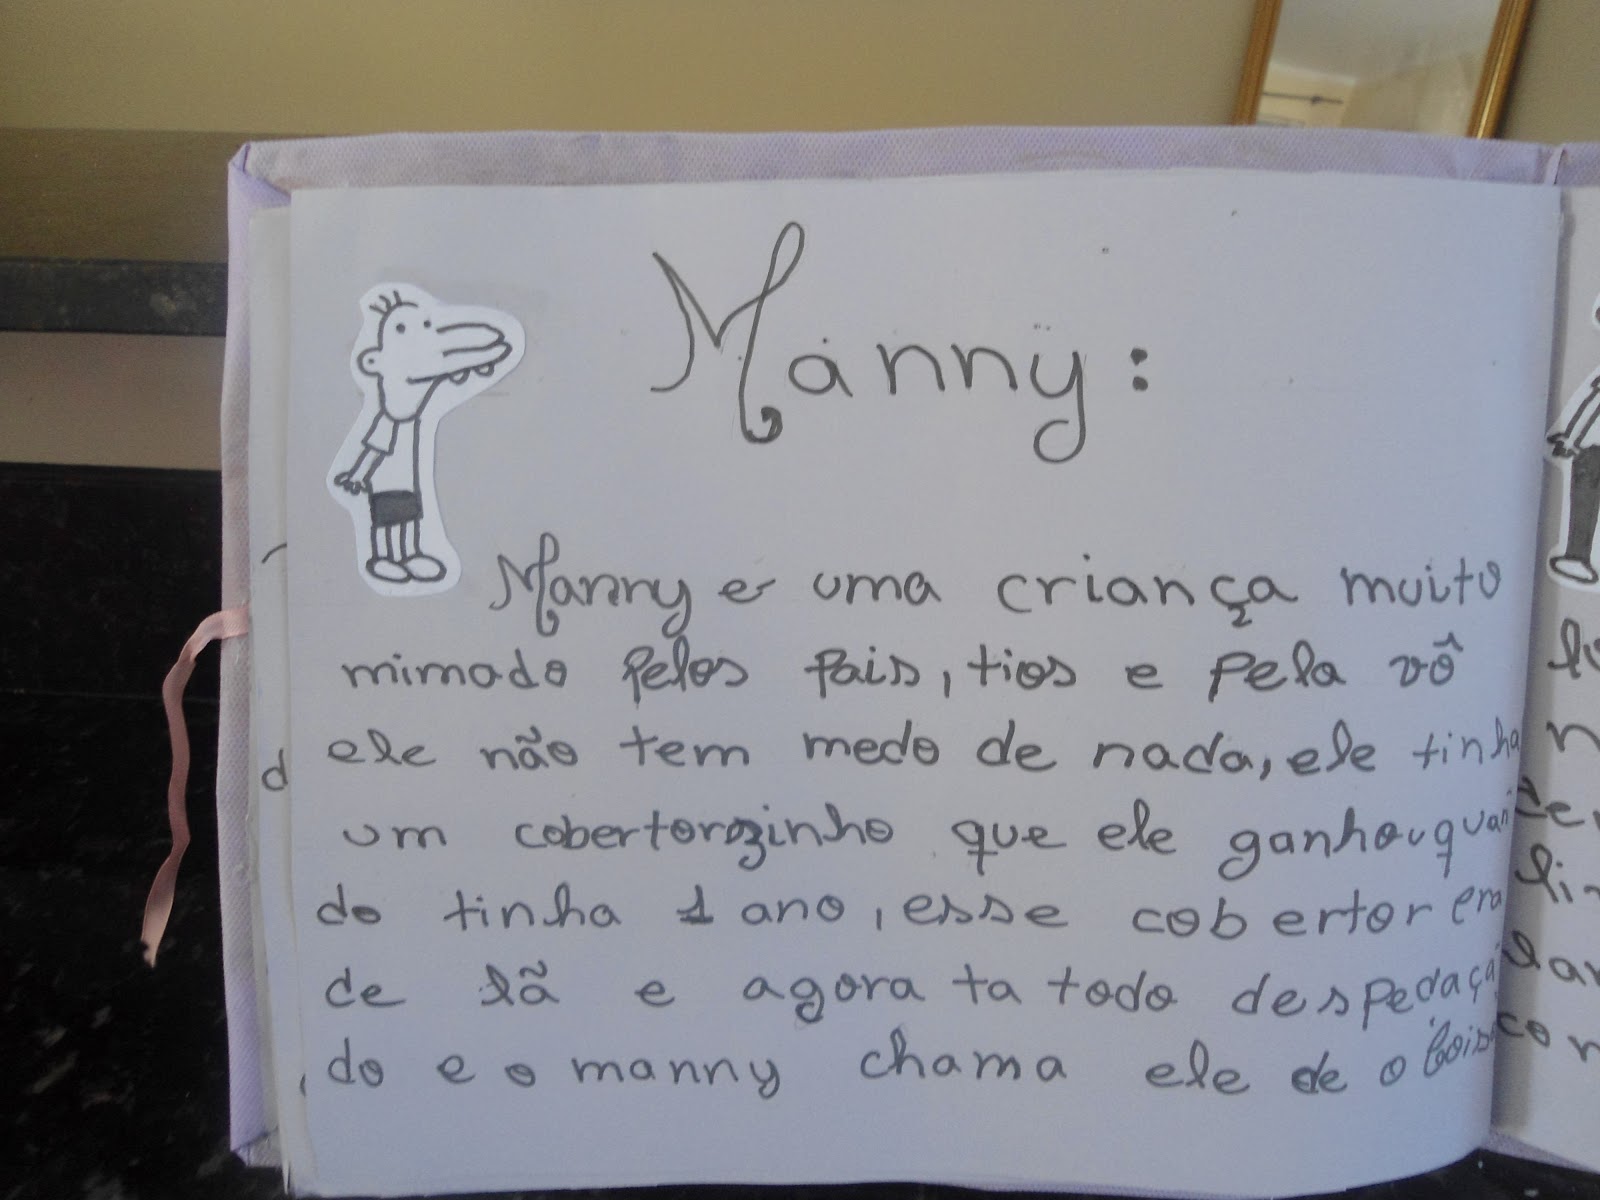 Manny:
Manny é uma criança muito
mimado pelos pais, tios e pela vô
ele não tem medo de nada, ele tinha
um cobertorzinho que ele ganhou quan
do tinha 1 ano, esse cobertor era
de lã e agora ta todo despedaça
do e o manny chama ele de o